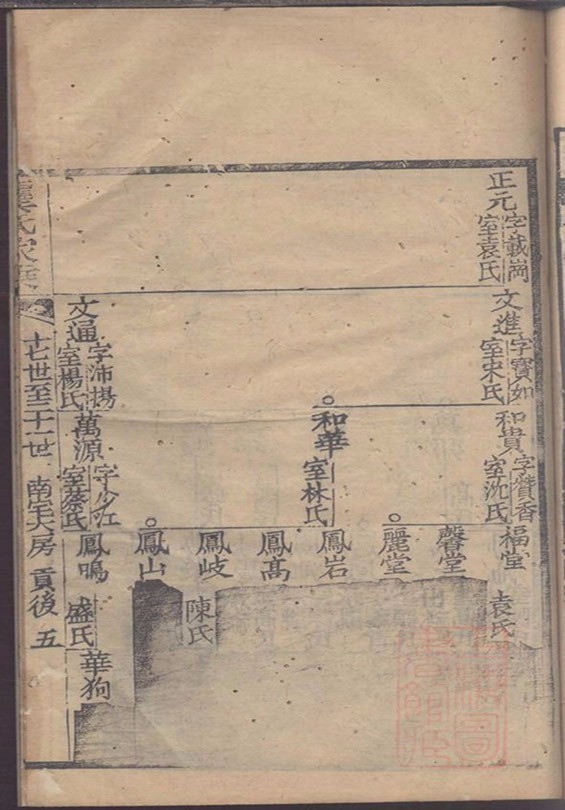 正元 字載崗 室袁氏
文進 字寶如 室宋氏
和貴 字贊香 室沈氏
福堂 袁氏
馨堂
麗堂
和華 室林氏
鳳岩
鳳髙
鳳岐 陳氏
鳳山
文逼 字沛揚 室楊氏
萬源 字少江 室蔡氏
鳳鳴 盛氏
華狗
氏家
十七世至二十一世 南宅大房 貢後 五